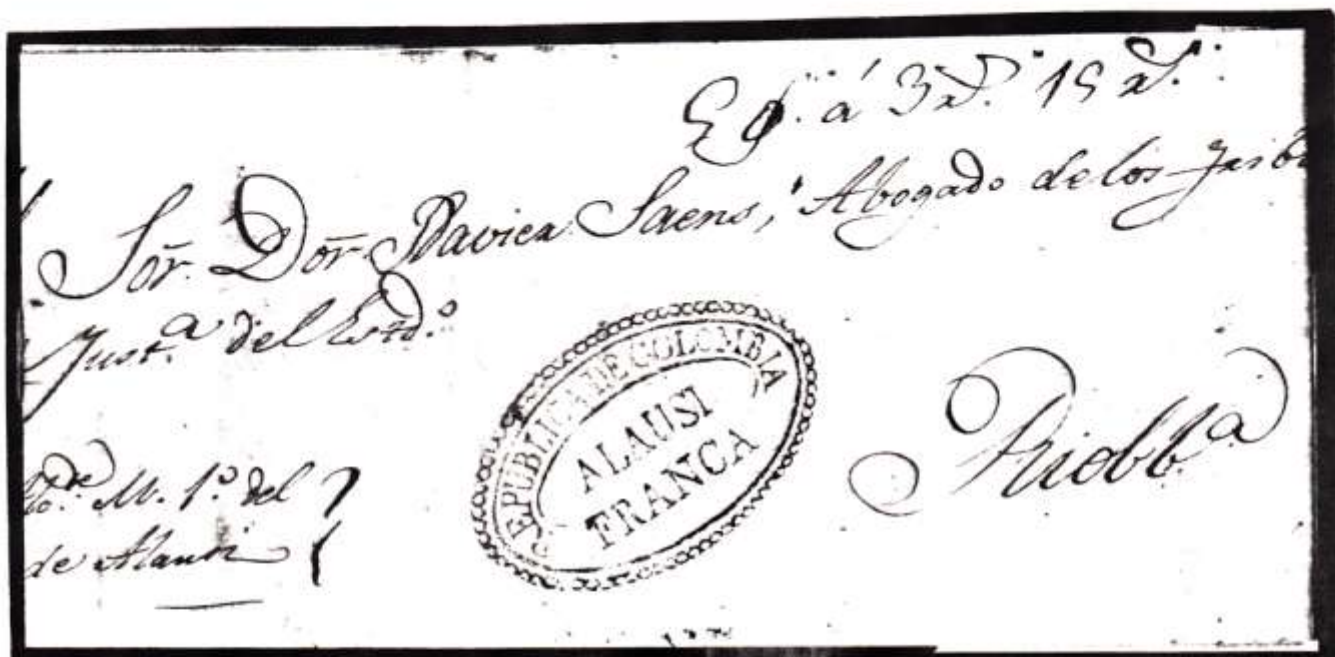 á 3 15
Sōr. Dōr. Saens, Abogado de los
Just.ª del Estd.º
REPUBLICA DE COLOMBIA
ALAUSI
FRANCA
Riobb.ª
M. 1º del
de Alausi